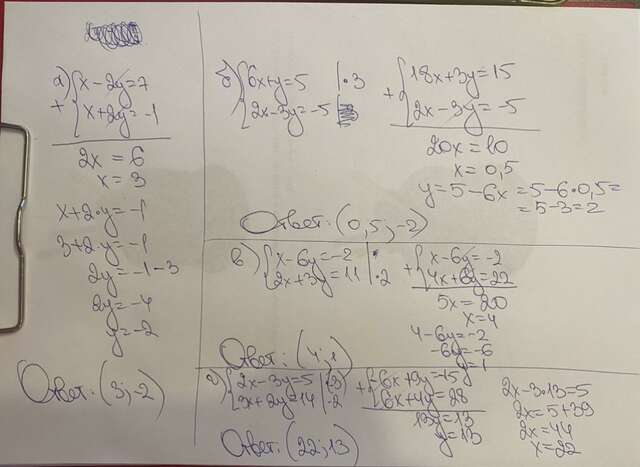 а) {x-2y=7
+ {x+2y=-1
2x=6
x=3
x+2·y=-1
3+2·y=-1
2y=-1-3
2y=-4
y=-2
Ответ: (3;-2)
б) {6x+y=5 |·3
{2x-3y=-5
+ {18x+3y=15
{2x-3y=-5
20x=10
x=0,5
y=5-6x=5-6·0,5=
=5-3=2
Ответ: (0,5;-2)
в) {x-6y=-2
{2x+3y=11 |·2
+ {x-6y=-2
{4x+6y=22
5x=20
x=4
4-6y=-2
-6y=-6
y=1
Ответ: (4;1
г) {2x-3y=5 |(-3)
{3x+2y=14 |·2
+ {-6x+9y=-15
{6x+4y=28
13y=13
y=13
2x-3·13=5
2x=5+39
2x=44
x=22
Ответ: (22;13)